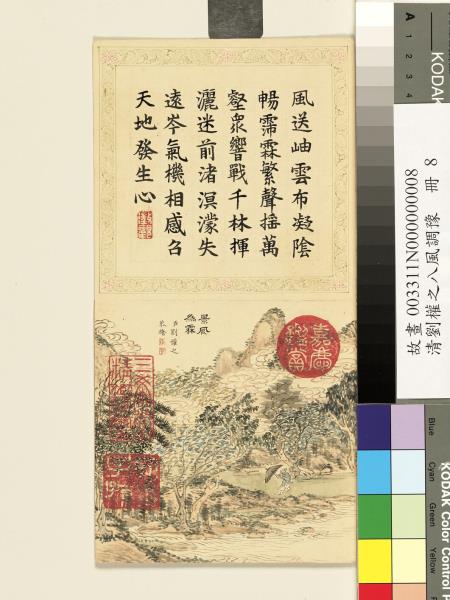 風送岫雲布凝陰
暢霈霖繁聲搖萬
壑衆響戰千林揮
灑迷前渚溟濛失
遠岑氣機相感召
天地發生心
景風
為霖
臣劉權之
恭繪
嘉慶鑑賞
三希堂精鑑璽
宜子孫
故畫 003311N000000008
清劉權之八風調豫 冊 8
A 1 2 3 4
KODAK
Blue
Cyan
Green
Yellow
KODAK Color Control